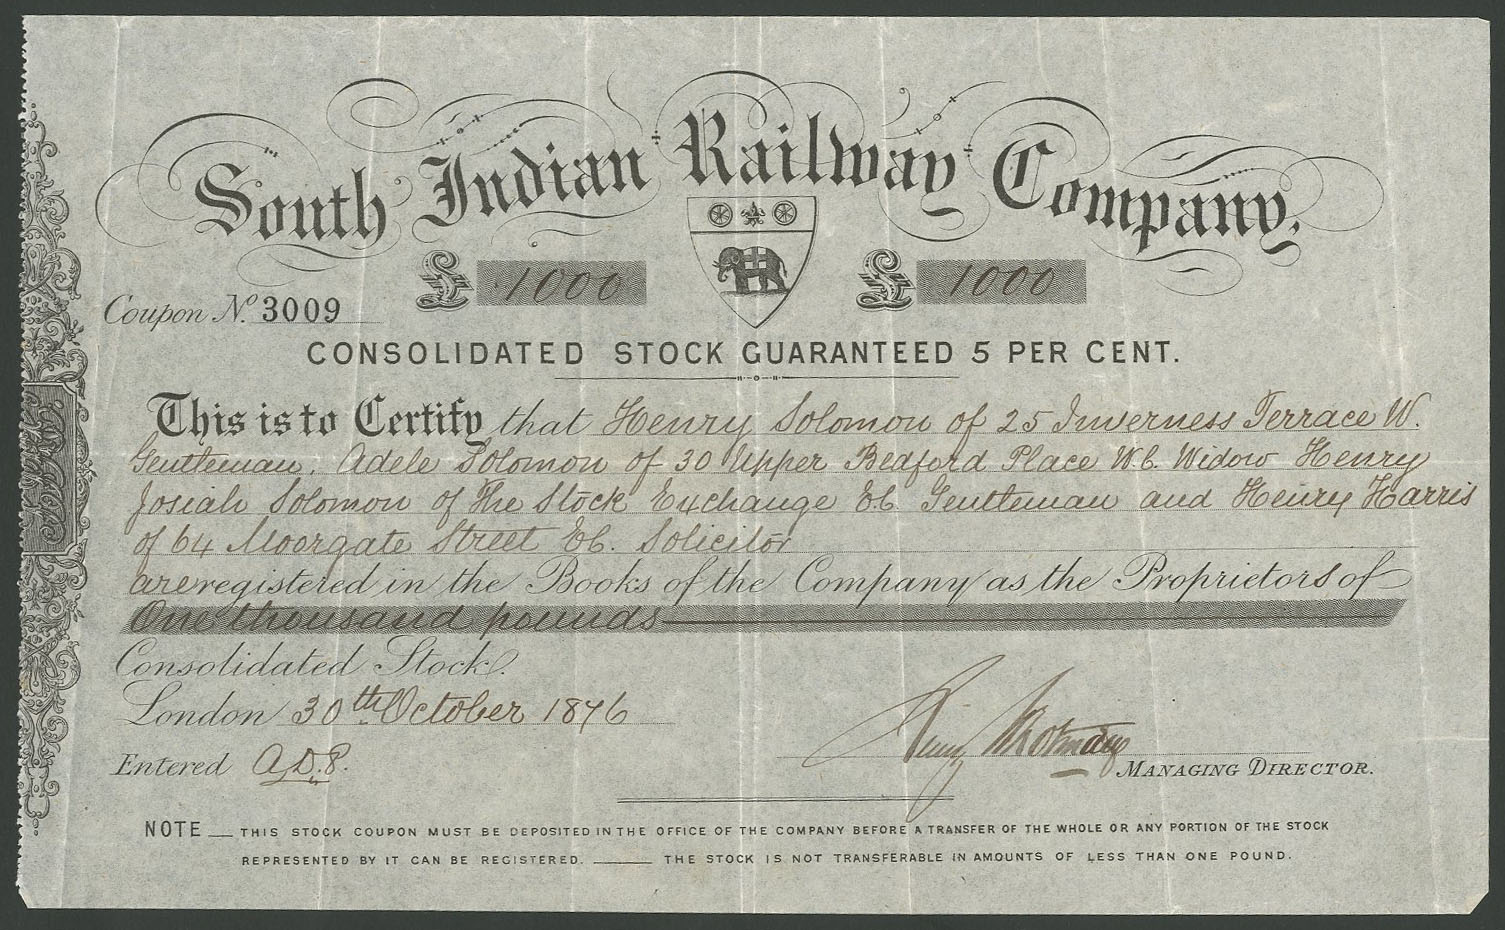 South Indian Railway Company.
£ 1000 £ 1000
Coupon No. 3009
CONSOLIDATED STOCK GUARANTEED 5 PER CENT.
This is to Certify that Henry Solomon of 25 Inverness Terrace W.
Gentleman. Adele Solomon of 30 Upper Bedford Place W.C. Widow Henry
Josiah Solomon of The Stock Exchange E.C. Gentleman and Henry Harris
of 64 Moorgate Street E.C. Solicitor
are registered in the Books of the Company as the Proprietors of
One thousand pounds
Consolidated Stock.
London 30th October 1876
Entered
MANAGING DIRECTOR.
NOTE — THIS STOCK COUPON MUST BE DEPOSITED IN THE OFFICE OF THE COMPANY BEFORE A TRANSFER OF THE WHOLE OR ANY PORTION OF THE STOCK
REPRESENTED BY IT CAN BE REGISTERED. — THE STOCK IS NOT TRANSFERABLE IN AMOUNTS OF LESS THAN ONE POUND.